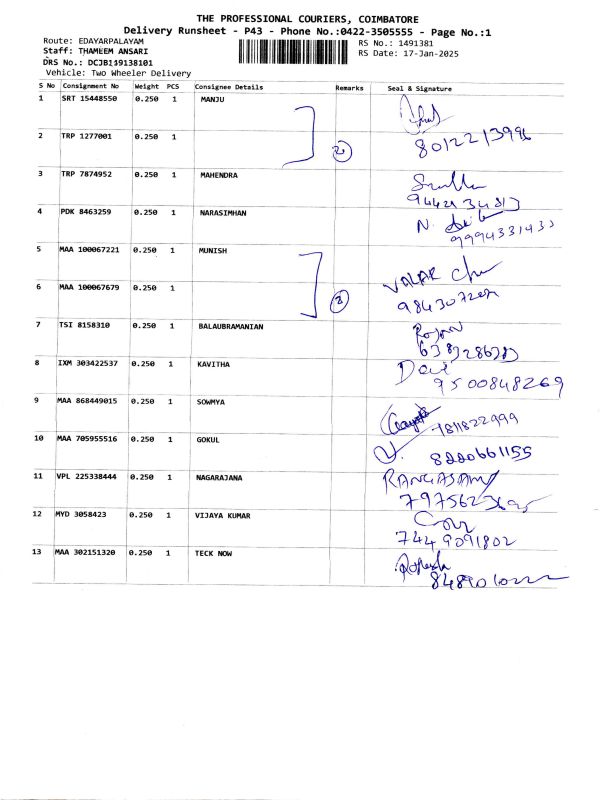 THE PROFESSIONAL COURIERS, COIMBATORE
Delivery Runsheet - P43 - Phone No.:0422-3505555 - Page No.:1
Route: EDAYARPALAYAM RS No.: 1491381
Staff: THAMEEM ANSARI RS Date: 17-Jan-2025
DRS No.: DCJB119138101
Vehicle: Two Wheeler Delivery
S No Consignment No Weight PCS Consignee Details Remarks Seal & Signature
1 SRT 15448550 0.250 1 MANJU
2 TRP 1277001 0.250 1 2 8012213996
3 TRP 7874952 0.250 1 MAHENDRA
4 PDK 8463259 0.250 1 NARASIMHAN N. 9994331433
5 MAA 100067221 0.250 1 MUNISH VALAR
6 MAA 100067679 0.250 1 2
7 TSI 8158310 0.250 1 BALAUBRAMANIAN
8 IXM 303422537 0.250 1 KAVITHA 9500848269
9 MAA 868449015 0.250 1 SOWMYA 7811822999
10 MAA 705955516 0.250 1 GOKUL 8220661155
11 VPL 225338444 0.250 1 NAGARAJANA RANGASAMY
12 MYD 3058423 0.250 1 VIJAYA KUMAR 7449091802
13 MAA 302151320 0.250 1 TECK NOW